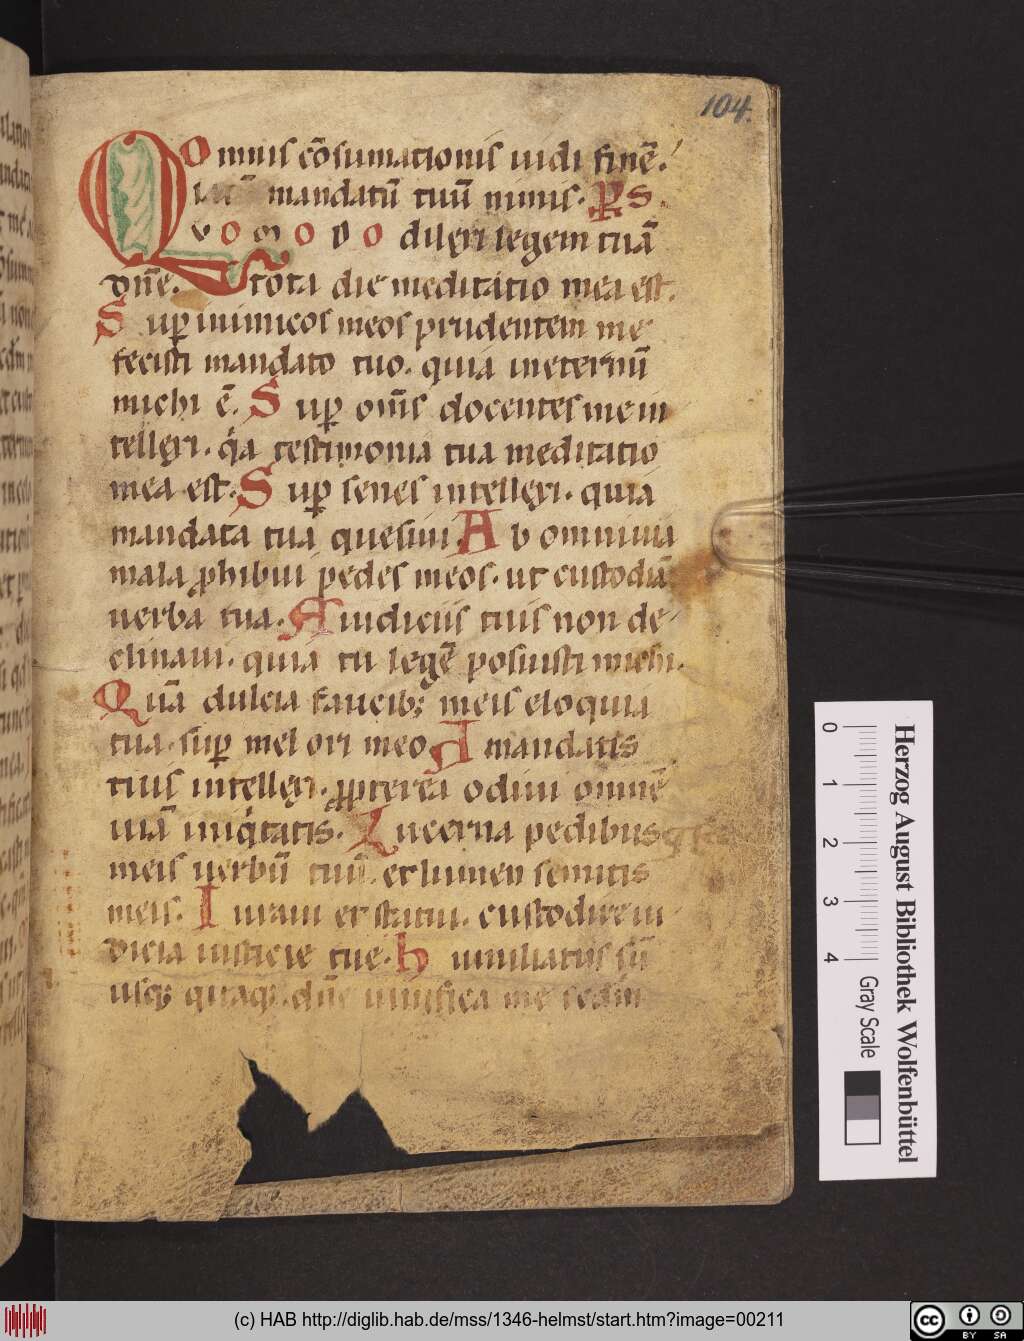 104.
Omnis cōsumationis uidi finē.
latū mandatū tuū nimis. P̄s
Quomodo dilexi legem tuā
dn̄e. tota die meditatio mea est.
Sup̄ inimicos meos prudentem me
fecisti mandato tuo. quia ineternū
michi ē. Sup̄ om̄s docentes me in
tellexi. q̇a testimonia tua meditatio
mea est. Sup̄ senes intellexi. quia
mandata tua quesiui. Ab omni uia
mala ꝓhibui pedes meos. ut custodiā
uerba tua. A iudiciis tuis non de
clinaui. quia tu legē posuisti michi.
Quā dulcia faucib; meis eloquia
tua. sup̄ mel ori meo. A mandatis
tuis intellexi. ꝓpterea odiui omnē
uiā iniq̇tatis. Lucerna pedibus
meis uerbū tuū. et lumen semitis
meis. Iuraui et statui. custodire iu
dicia iusticie tue. Humiliatus sū
usq; quaq;. dn̄e uiuifica me scd̄m
Herzog August Bibliothek Wolfenbüttel
0 1 2 3 4 Gray Scale
(c) HAB http://diglib.hab.de/mss/1346-helmst/start.htm?image=00211
cc BY SA